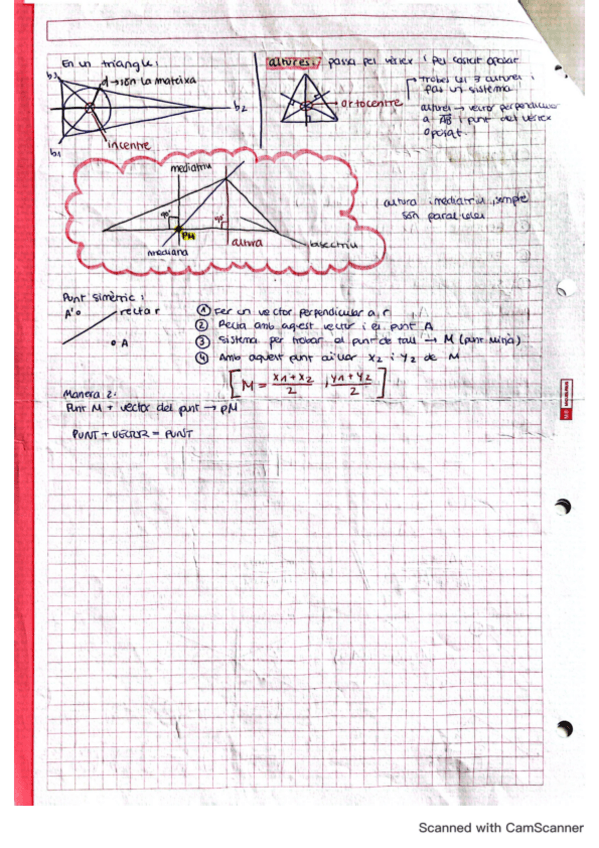 En un triangle:
b3
d → són la mateixa
b2
b1
incentre
altures: passa pel vèrtex i pel costat oposat
ortocentre
Trobes les altures i
fas un sistema
altures → vector perpendicular
a AB i punt del vèrtex
oposat.
mediatriu
90°
90°
PM
altura
bisectriu
mediana
altura i mediatriu, sempre
són paral·leles
Punt simètric:
A'
recta r
A
① Fer un vector perpendicular a r
② Recta amb aquest vector i el punt A
③ Sistema per trobar el punt de tall → M (punt mitjà)
④ Amb aquest punt aïllar x2 i y2 de M
[M = x1+x2/2 , y1+y2/2]
Manera 2:
Punt M + vector del punt → PM
PUNT + VECTOR = PUNT
Scanned with CamScanner